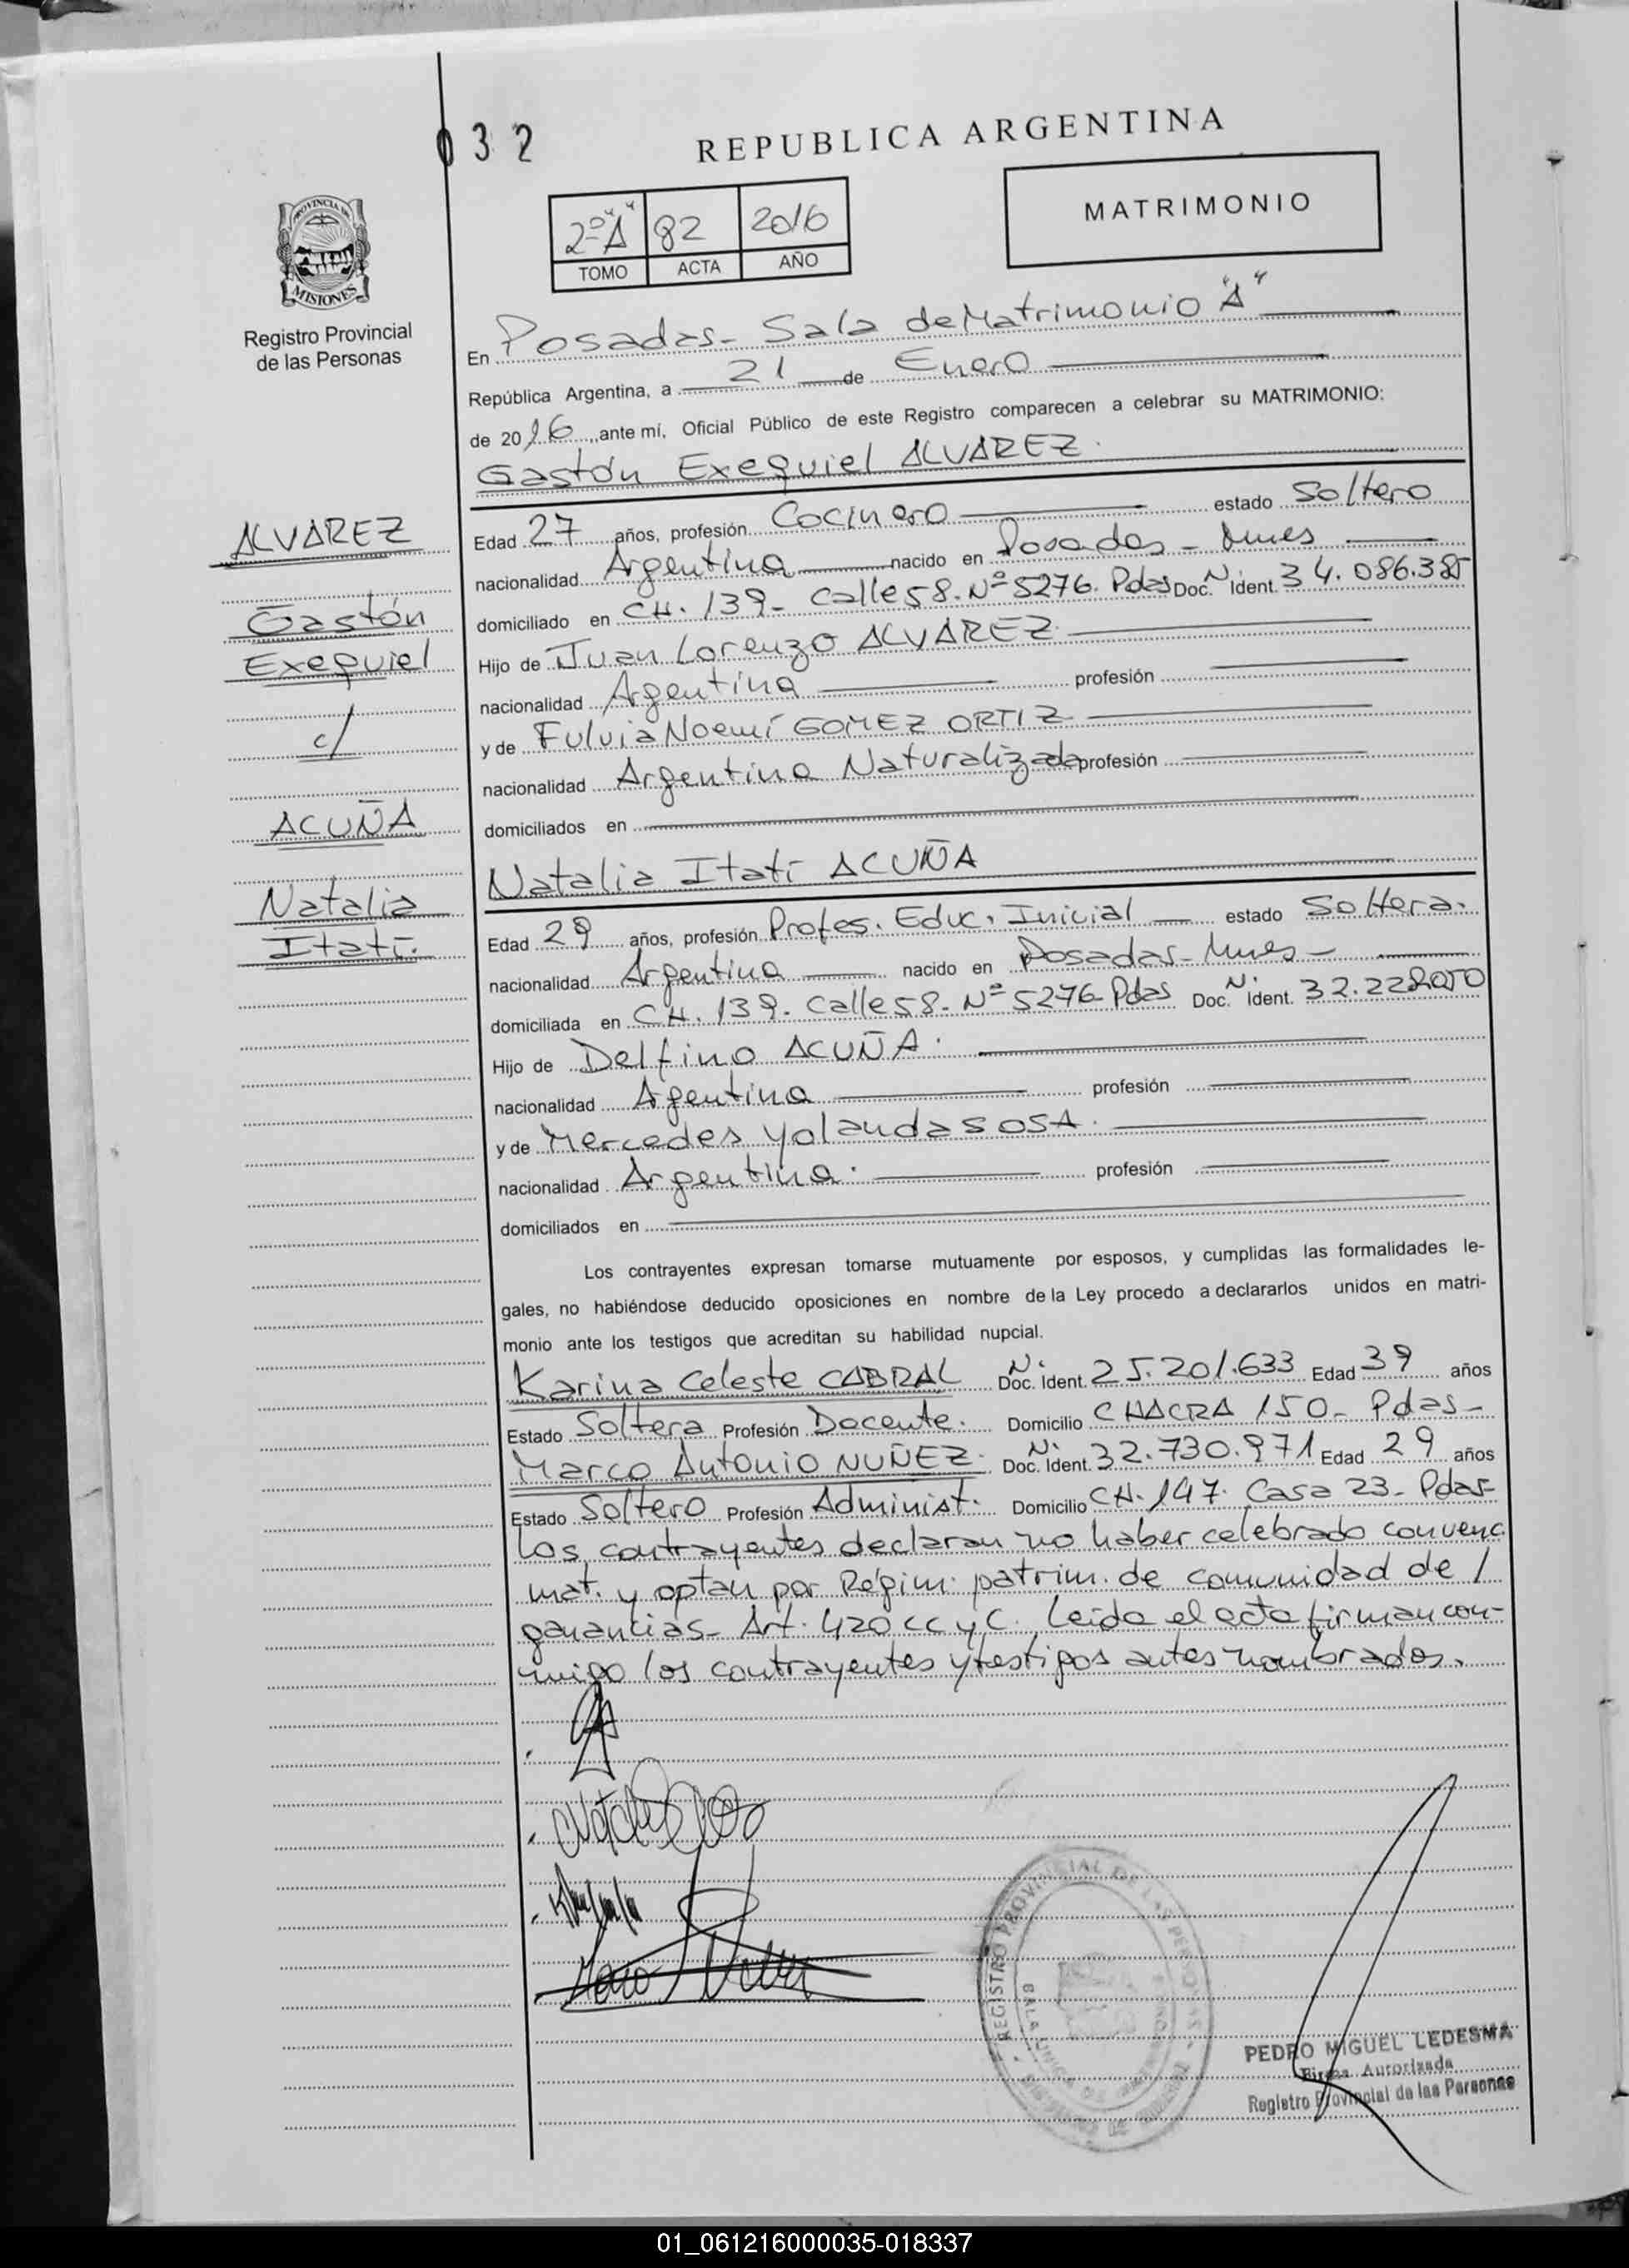 032
REPUBLICA ARGENTINA
MATRIMONIO
2º "A" 82 2016
TOMO ACTA AÑO
PROVINCIA DE
MISIONES
Registro Provincial
de las Personas
En Posadas - Sala de Matrimonio "A"
República Argentina, a 21 de Enero
de 2016, ante mí, Oficial Público de este Registro comparecen a celebrar su MATRIMONIO:
Gastón Exequiel ALVAREZ.
ALVAREZ
Gastón
Exequiel
c/
ACUÑA
Natalia
Itatí.
Edad 27 años, profesión Cocinero estado Soltero
nacionalidad Argentina nacido en Posadas - Mnes
domiciliado en CH. 139 - Calle 58. Nº 5276. Pdas Doc. N. Ident. 34.086.385
Hijo de Juan Lorenzo ALVAREZ
nacionalidad Argentina profesión
y de Fulvia Noemí GOMEZ ORTIZ
nacionalidad Argentina Naturalizada profesión
domiciliados en
Natalia Itatí ACUÑA
Edad 29 años, profesión Profes. Educ. Inicial estado Soltera.
nacionalidad Argentina nacido en Posadas - Mnes -
domiciliada en CH. 139. Calle 58. Nº 5276 Pdas Doc. N. Ident. 32.22
Hijo de Delfino ACUÑA.
nacionalidad Argentina profesión
y de Mercedes Yolanda SOSA.
nacionalidad Argentina. profesión
domiciliados en
Los contrayentes expresan tomarse mutuamente por esposos, y cumplidas las formalidades le-
gales, no habiéndose deducido oposiciones en nombre de la Ley procedo a declararlos unidos en matri-
monio ante los testigos que acreditan su habilidad nupcial.
Karina Celeste CABRAL Doc. N. Ident. 25.201.633 Edad 39 años
Estado Soltera Profesión Docente. Domicilio CHACRA 150 - Pdas -
Marco Antonio NUÑEZ. Doc. N. Ident. 32.730.971 Edad 29 años
Estado Soltero Profesión Administ. Domicilio CH. 147. Casa 23 - Pdas -
Los contrayentes declaran no haber celebrado convenc.
mat. y optan por Régim. patrim. de comunidad de /
ganancias - Art. 420 CC y C. Leida el acta firman con-
migo los contrayentes y testigos antes nombrados.
REGISTRO PROVINCIAL DE LAS PERSONAS
PEDRO MIGUEL LEDESMA
Firma Autorizada
Registro Provincial de las Personas
01_061216000035-018337